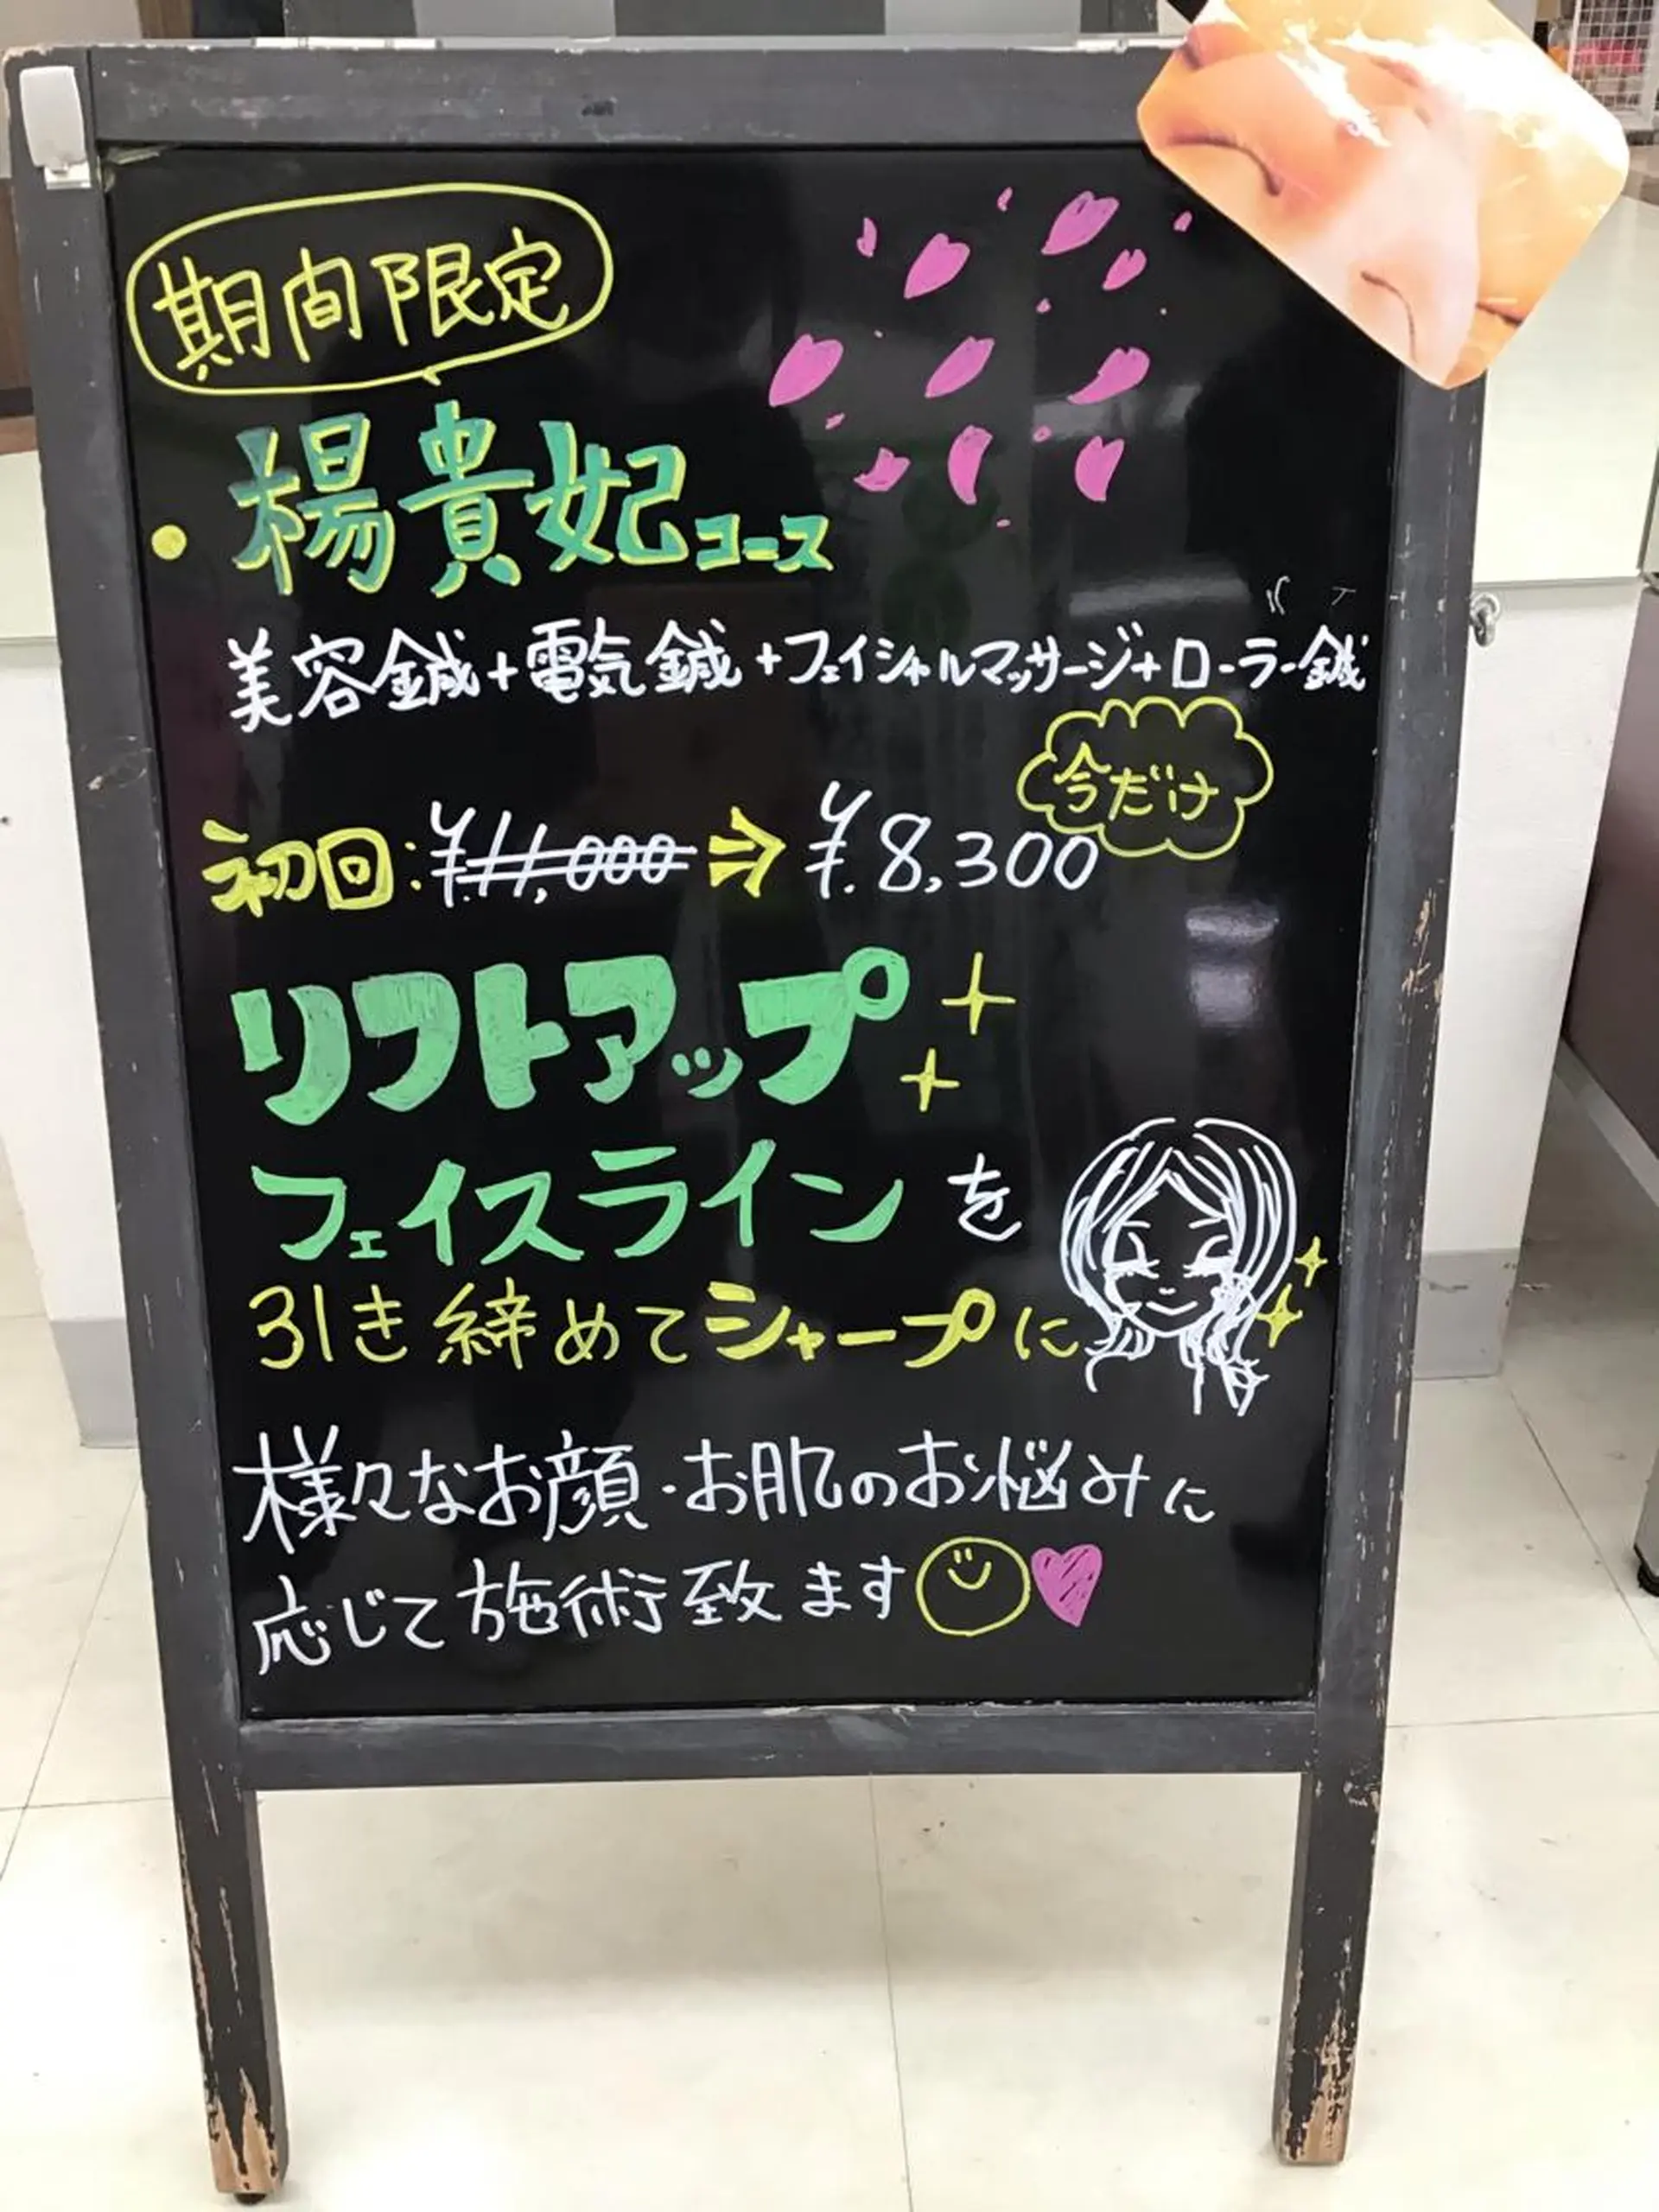 期間限定
・楊貴妃コース
美容鍼+電気鍼+フェイシャルマッサージ+ローラー鍼
今だけ
初回:¥11,000⇒¥8,300
リフトアップ
フェイスラインを
引き締めてシャープに
様々なお顔・お肌のお悩みに
応じて施術致ます